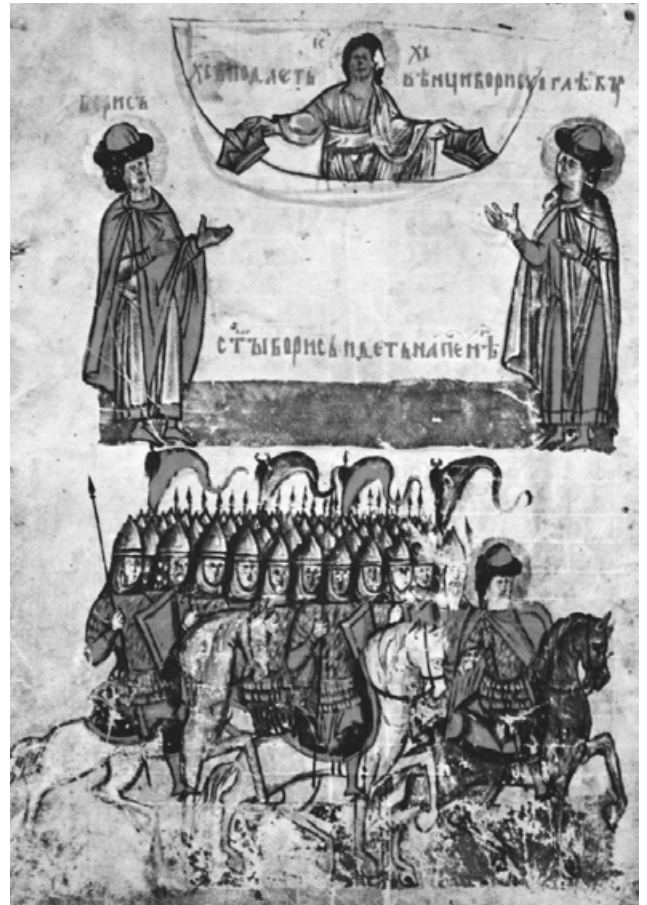 ІС ХС
ХСЪ ПОДАЕТЬ ВѢНЦИ БОРИСУ И ГЛѢБУ
БОРИСЪ
СТЫ БОРИСЬ ИДЕТЬ НА ПЕНѢ